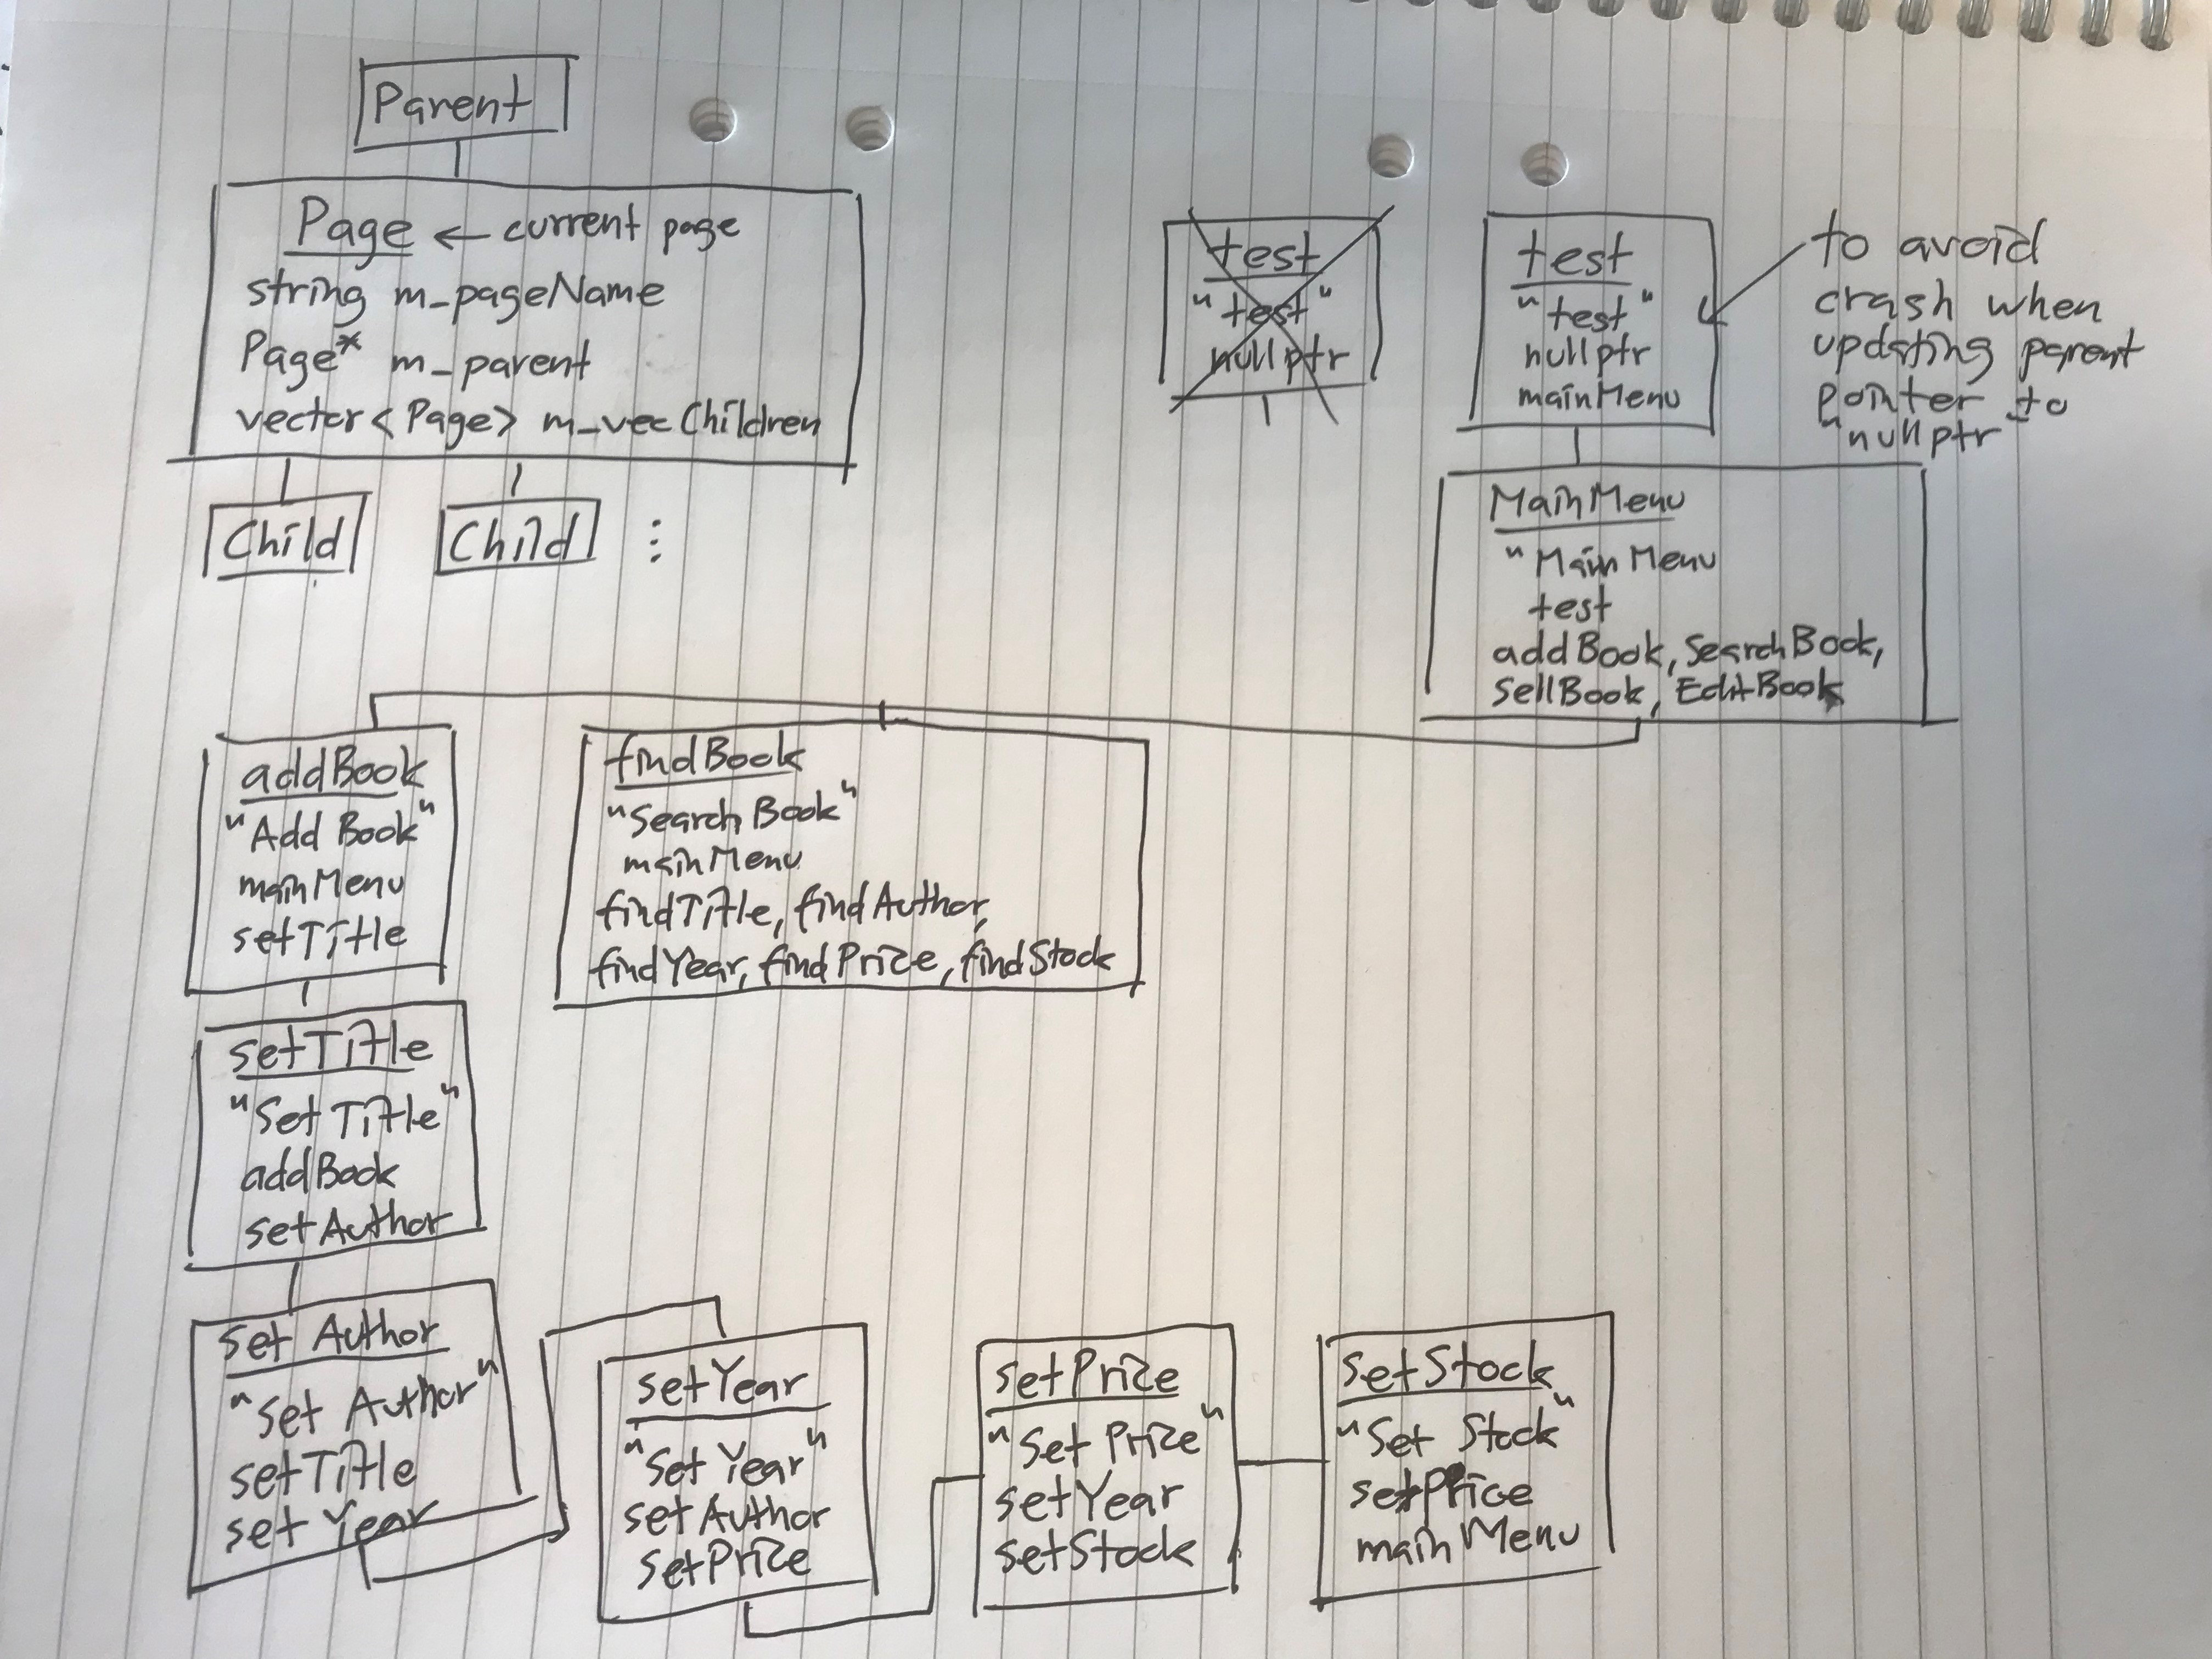 Parent
Page ← current page
string m_pageName
Page* m_parent
vector<Page> m_vecChildren
Child Child ⋮
test
"test"
nullptr
test
"test"
nullptr
mainMenu
to avoid
crash when
updating parent
pointer to
"nullptr"
MainMenu
"MainMenu
test
addBook, SearchBook,
SellBook, EditBook
addBook
"Add Book"
mainMenu
setTitle
findBook
"Search Book"
mainMenu
findTitle, findAuthor,
findYear, findPrice, findStock
setTitle
"Set Title"
addBook
setAuthor
set Author
"Set Author"
setTitle
set Year
setYear
"Set Year"
setAuthor
setPrice
setPrice
"Set Price"
setYear
setStock
setStock
"Set Stock"
setPrice
mainMenu